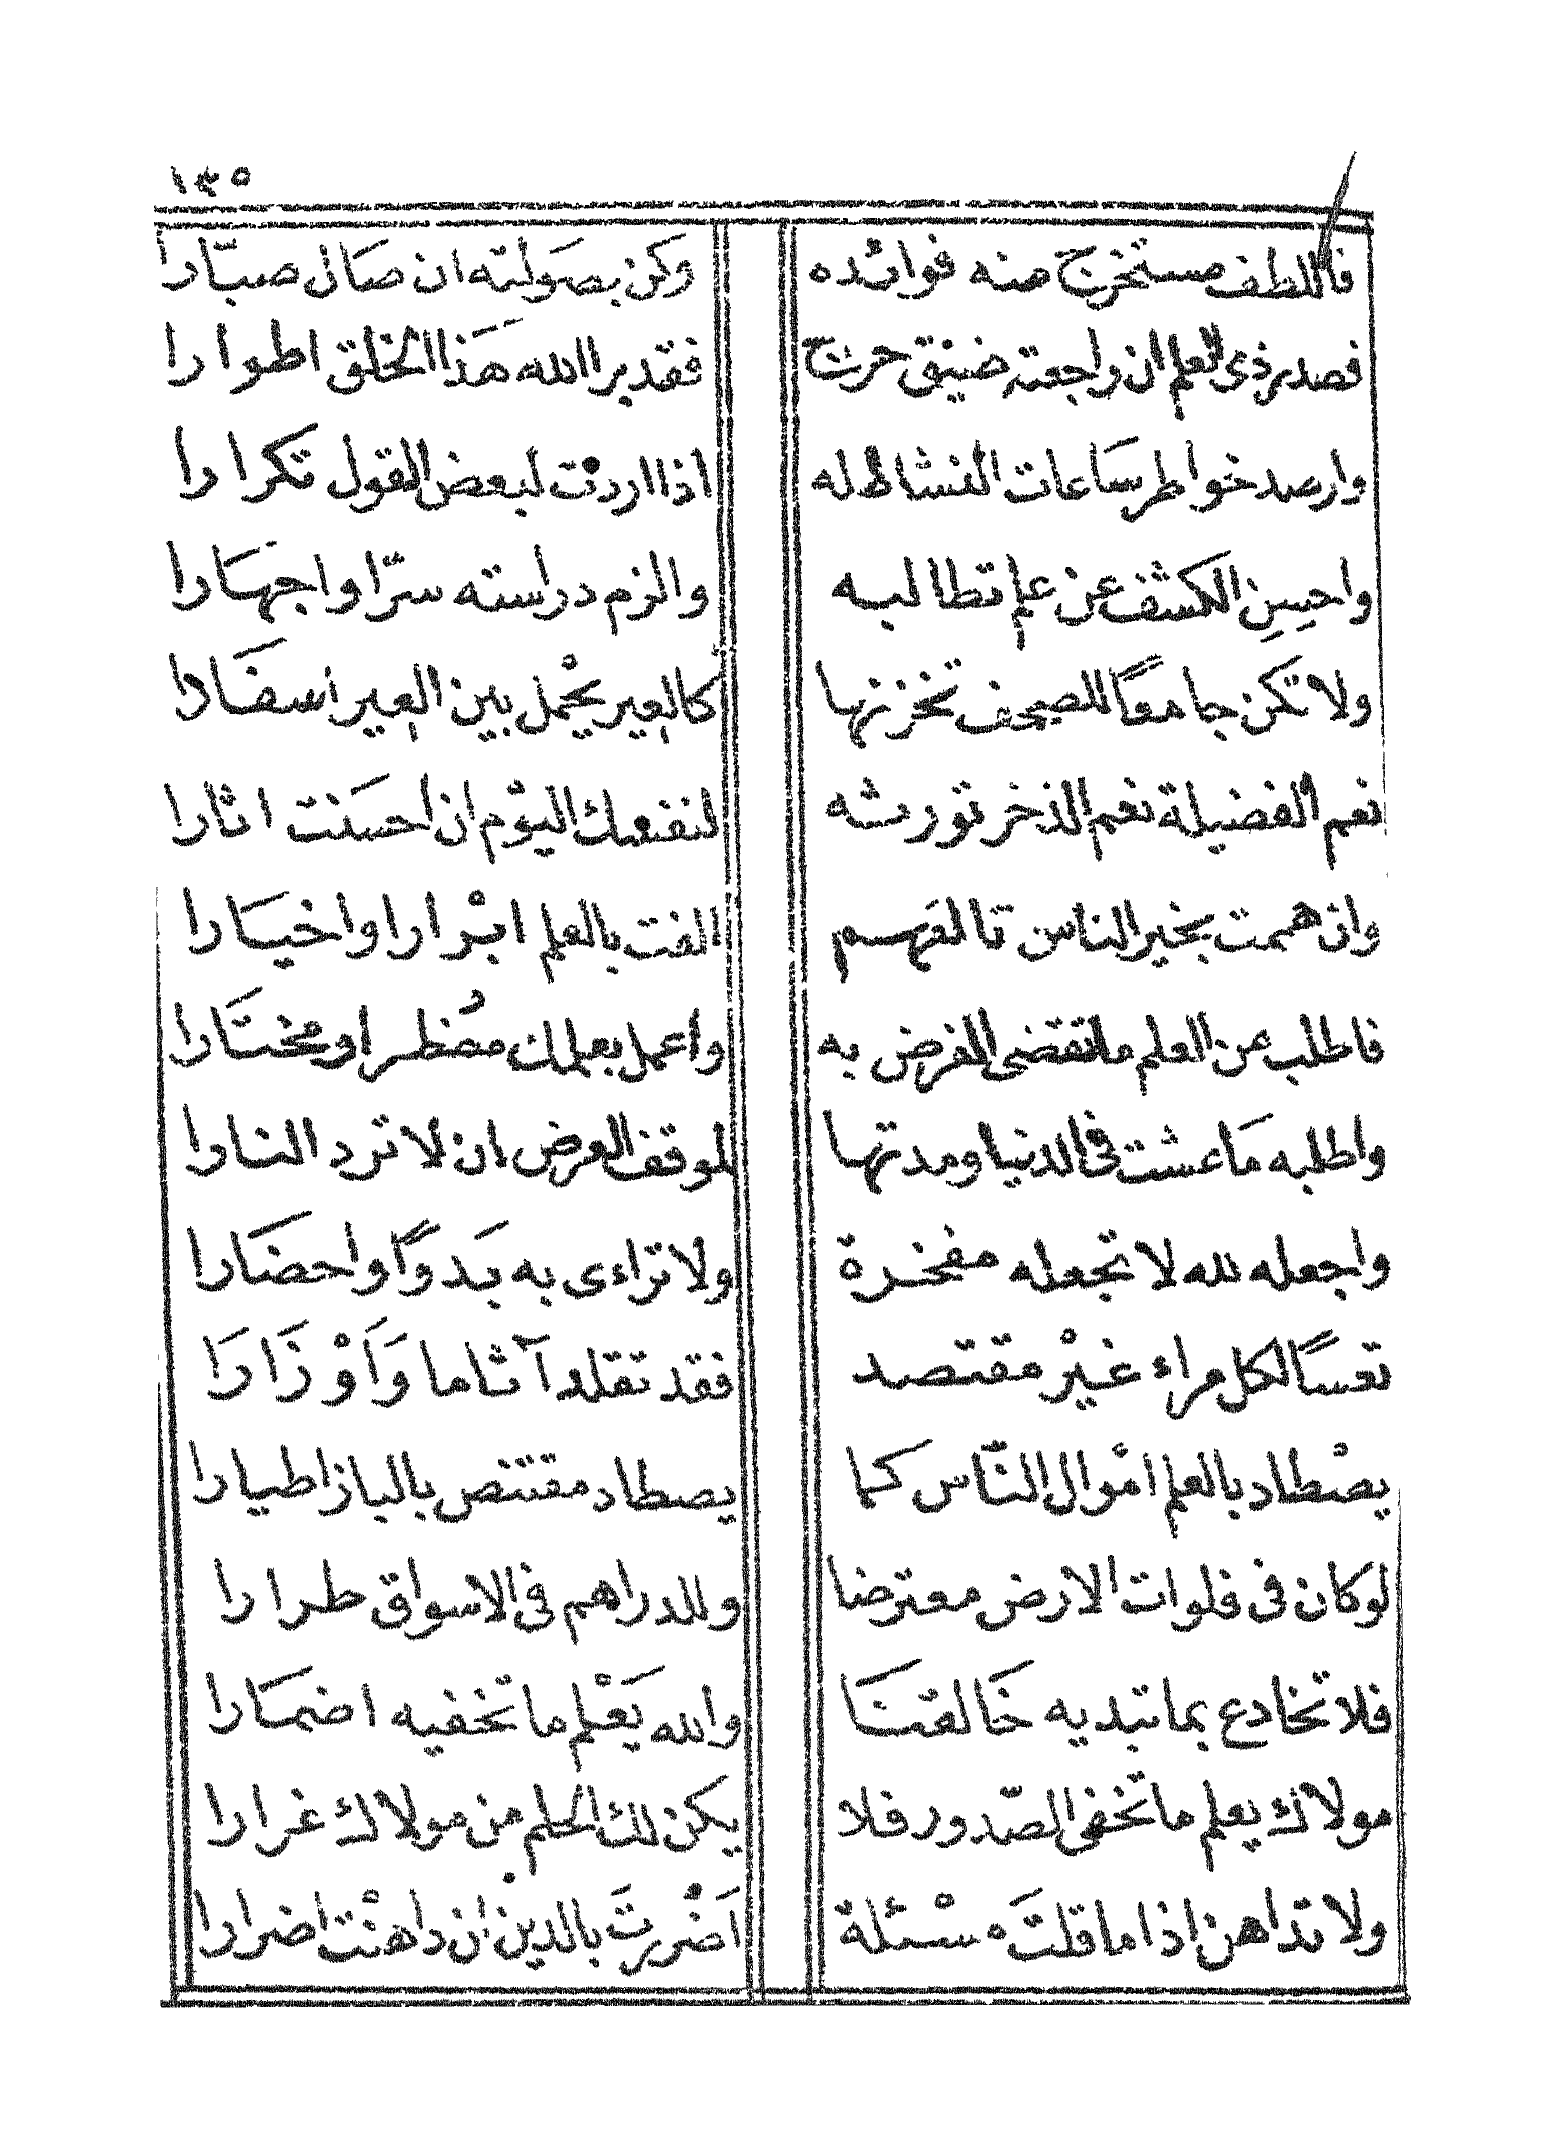 ١٣٥
فاللطف مستخرج منه فوائده وكن بصولته ان صال صبّارا
فصدر ذى العلم ان راجعته ضيق حرج فقد برا الله هَذا الخلق اطوارا
وارصد خواطر سَاعات النشاط له اذا اردت لبعض القول تكرارا
واحسِنِ الكشف عن علم تطالبه والزم دراسته سرّا واجهَارا
ولا تكن جامعًا للصحف تخزنها كالعير يحْمل بين العير اسفَارا
نعم الفضيلة نعم الذخر تورثه لنفعك اليوْم ان احسَنت اثارا
وان هممت بخير الناس تالفهم الفت بالعلم ابْرارا واخيَارا
فاطلب من العلم ما تقضى الفرض به واعمل بعلمك مضُطرا ومختَارا
واطلبه مَا عشت فى الدنيا ومدتها لموقف العرض ان لا ترد النارا
واجعله لله لا تجعله مفخرة ولا تراءى به بَدوًا واحضَارا
تعسًا لكل مراء غيْر مقتصد فقد تقلد آثاما وَاَوْزَارَا
يصْطاد بالعلم امْوال النّاس كما يصطاد مقتنص بالباز اطيارا
لو كان فى فلوات الارض معترضا وللدراهم فى الاسواق طرارا
فلا تخادع بما تبديه خَالقنَا والله يَعْلم ما تخفيه اضمَارا
مولاك يعلم ما تخفى الصّدور فلا يكن لك الحلم من مولاك غرارا
ولا تداهن اذا ما قلتَ مسْئلة اَضْررتَ بالدين ان داهنْت اضرارا